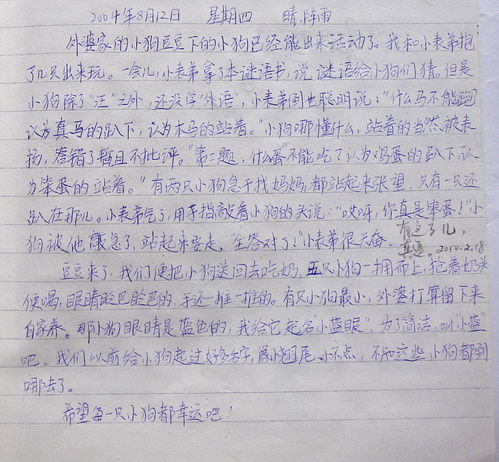 2004年8月12日 星期四 晴,阵雨
外婆家的小狗豆豆下的小狗已经能出来活动了。我和小表弟抱
了几只出来玩。一会儿,小表弟拿了本谜语书,说谜语给小狗们猜。但是
小狗除了“汪”之外,还没学“外语”,小表弟到也聪明说:“什么马不能跑
认为真马的趴下,认为木马的站着。”小狗哪懂什么,站着的当然被表
扬,答错了暂且不批评。“第二题,什么蛋不能吃了认为鸡蛋的趴下,认
为笨蛋的站着。”有两只小狗急于找妈妈,都站起来张望,只有一只还
趴在那儿。小表弟气了,用手指敲着小狗的头说:“哎呀,你真是笨蛋!”小
狗被他敲急了,站起来要走。“全答对了!”小表弟很兴奋。
有意了儿,
真逗。2010.2.18
豆豆来了,我们便把小狗送回去吃奶,五只小狗一拥而上,抢着奶头
便喝,眼睛眨巴眨巴的,手还一推一推的。有只小狗最小,外婆打算留下来
自家养。那小狗眼睛是蓝色的,我给它起名“小蓝眼”,为了简洁,叫“小蓝”
吧。我们以前给小狗起过好多名字,小不点,不知这些小狗都到
哪去了。
希望每一只小狗都幸运吧!